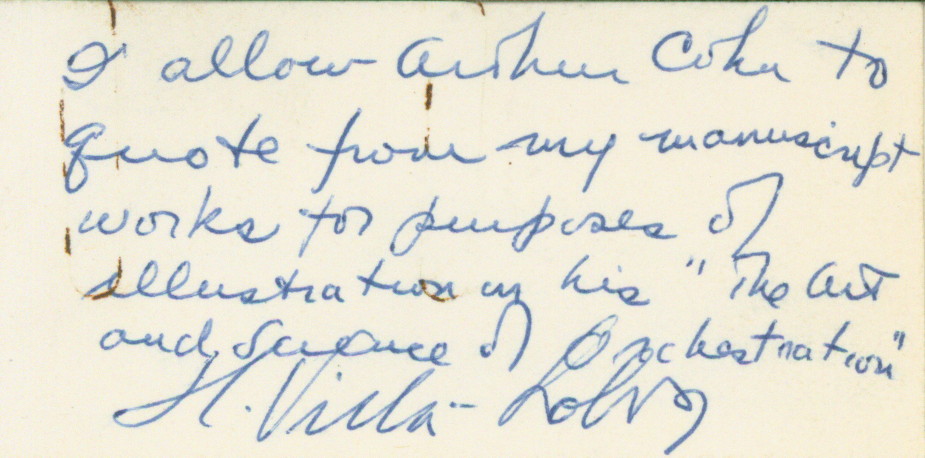 I allow Arthur Cohn to
quote from my manuscript
works for purposes of
illustration in his "The Art
and Science of Orchestration"
H. Villa-Lobos